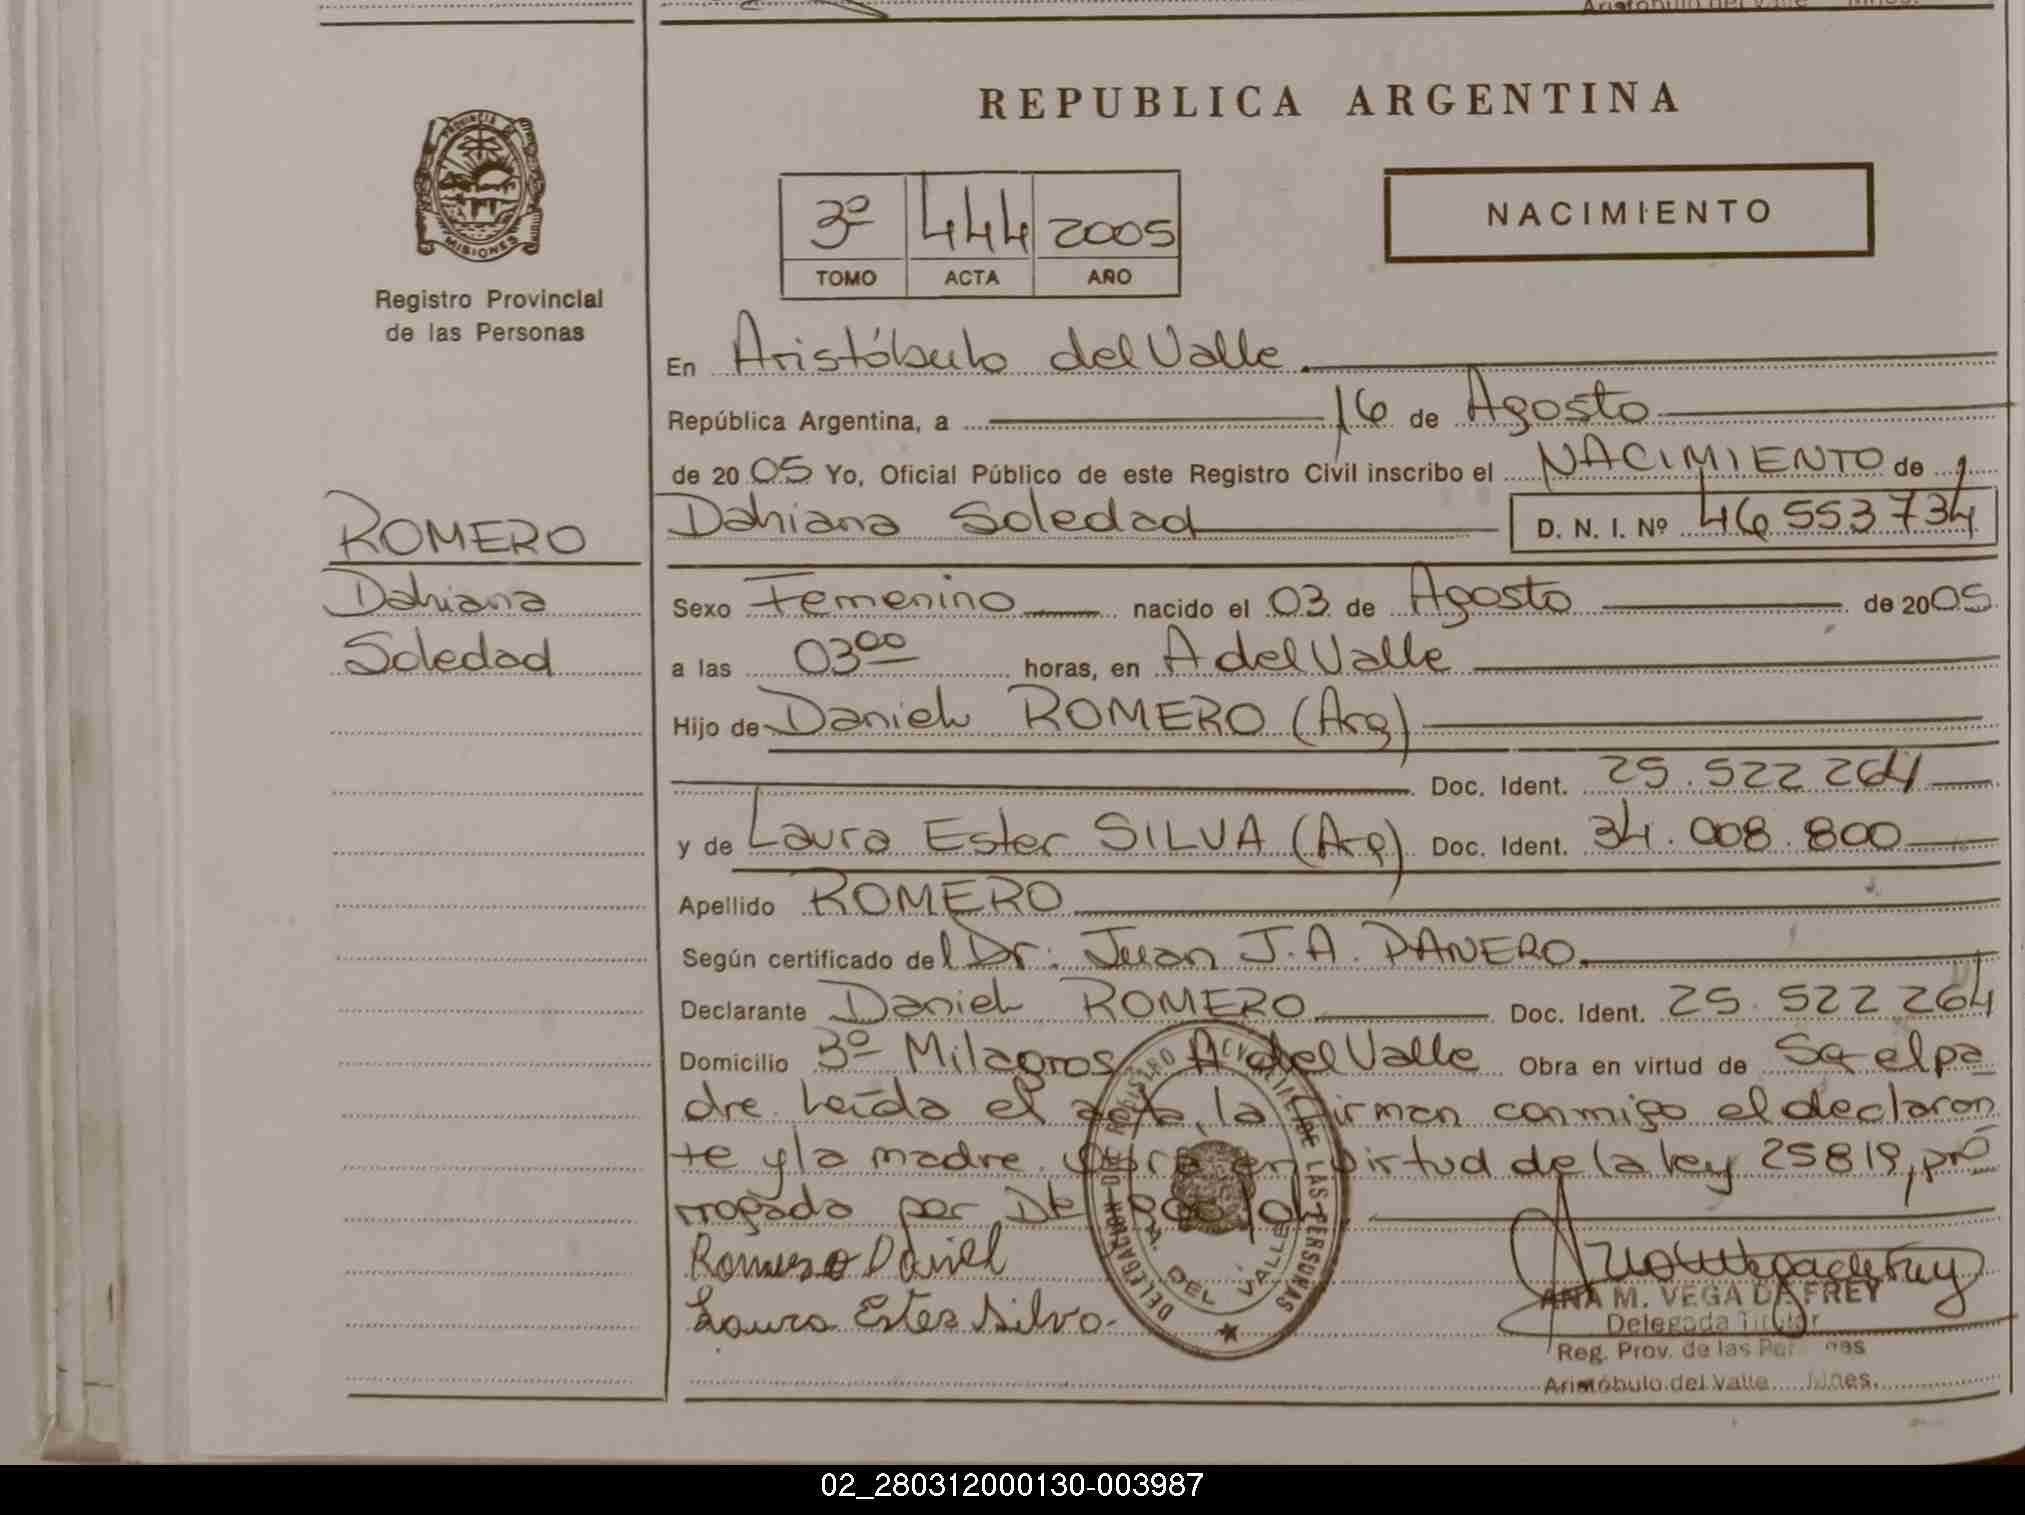 REPUBLICA ARGENTINA
PROVINCIA DE MISIONES
Registro Provincial
de las Personas
3º 444 2005
TOMO ACTA AÑO
NACIMIENTO
En Aristóbulo del Valle
República Argentina, a 16 de Agosto
de 2005 Yo, Oficial Público de este Registro Civil inscribo el NACIMIENTO de
ROMERO
Dahiana
Soledad
Dahiana Soledad D. N. I. Nº 46 553 734
Sexo Femenino nacido el 03 de Agosto de 2005
a las 03 00 horas, en A del Valle
Hijo de Daniel ROMERO (Arg)
Doc. Ident. 25.522 264
y de Laura Ester SILVA (Arg) Doc. Ident. 34.008.800
Apellido ROMERO
Según certificado del Dr: Juan J.A. DANERO
Declarante Daniel ROMERO Doc. Ident. 25.522 264
Domicilio 3º Milagros A del Valle Obra en virtud de Sq el pa
dre. Leída el acta, la firman conmigo el declaran
te y la madre. Obra en virtud de la ley 25819, pró
rrogada por
Romero Daniel
Laura Ester Silva
DELEGACION DE REGISTRO DE LAS PERSONAS
A. DEL VALLE
ANA M. VEGA DE FREY
Delegada Titular
Reg. Prov. de las Personas
Aristóbulo del Valle Mnes.
02_280312000130-003987